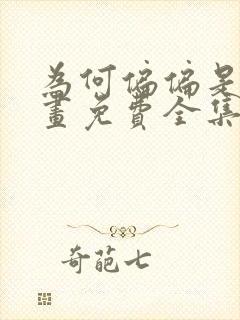 為何偏偏是
畫免費全集
奇葩七